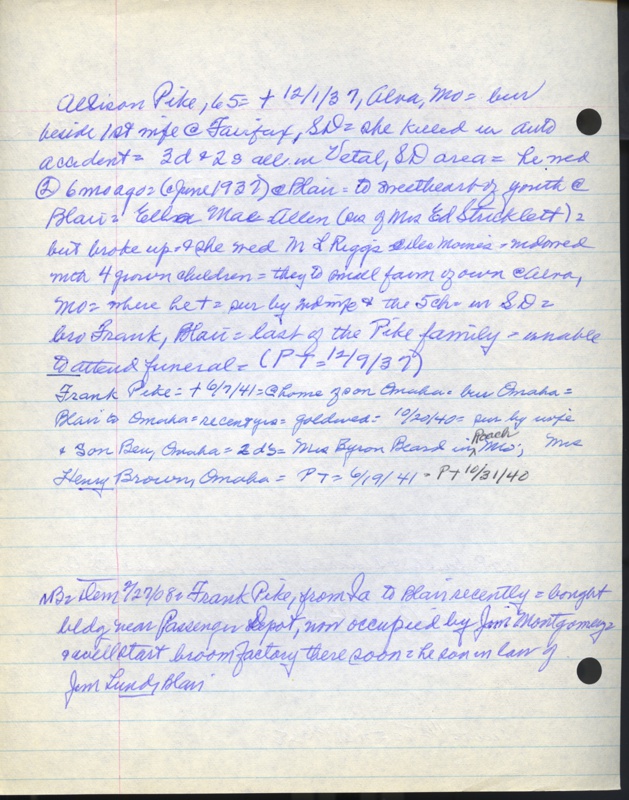 Allison Pike, 65 = + 12/1/37, Alva, Mo = bur
beside 1st wife @ Fairfax, SD = she killed in auto
accident = 3d & 2s all in Vetal, SD area = he med
② 6 mo ago = (c June 1937) @ Blair = to sweetheart of youth @
Blair = Ella Mae Allen (sis of Mrs Ed Stricklett) =
but broke up & she wed M L Riggs @ Des Moines = widowed
with 4 grown children = they to small farm of own @ Alva,
Mo = where he + = sur by wid wife & the 5 ch = in SD =
bro Frank, Blair = last of the Pike family = unable
to attend funeral = (PT = 12/9/37)
Frank Pike = + 6/7/41 = @ home of son Omaha = bur Omaha =
Blair to Omaha = recent yrs = goldwed = 10/20/40 = sur by wife
& son Ben, Omaha = 2 ds = Mrs Byron Beard in Roach Mo; Mrs
Henry Brown, Omaha = PT = 6/19/41 - PT 10/31/40
NB = Item 2/27/08 = Frank Pike, from Ia to Blair recently = bought
bldg near Passenger Depot, now occupied by Jim Montgomery =
& will start broom factory there soon = he son in law of
Jim Lundy Blair